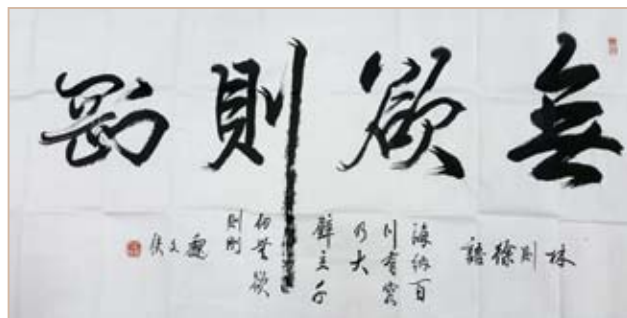 無欲則剛
林則徐語
海納百
川有容
乃大
壁立千
仞無欲
則剛
魏文